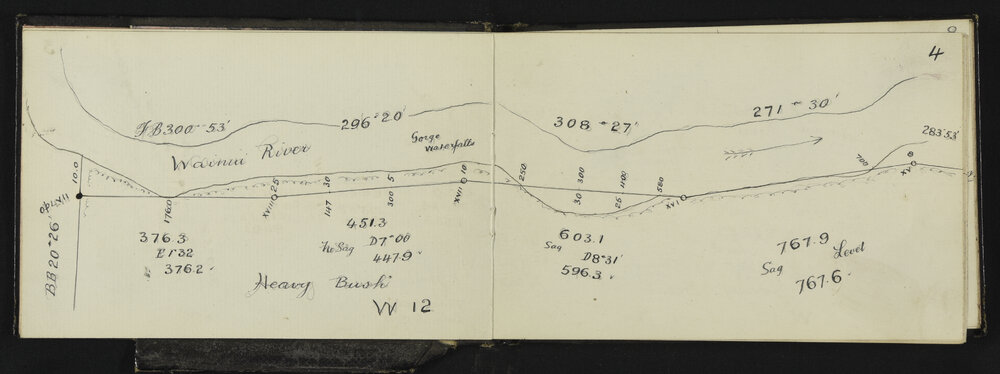 4
FB 300° 53'
296° 20'
308° 27'
271° 30'
283° 53'
Wainui River
Gorge
Waterfalls
10.0
IIK740
BB 20° 26'
1760
XVIII
25
147
30
300
5
XVII
10
250
30
300
25
1100
580
XVI
700
XV
8
376.3
E1°32
376.2
451.3
No Sag
D7°00
447.9
603.1
Sag
D8°31'
596.3
767.9
Level
Sag
767.6
Heavy Bush
W 12